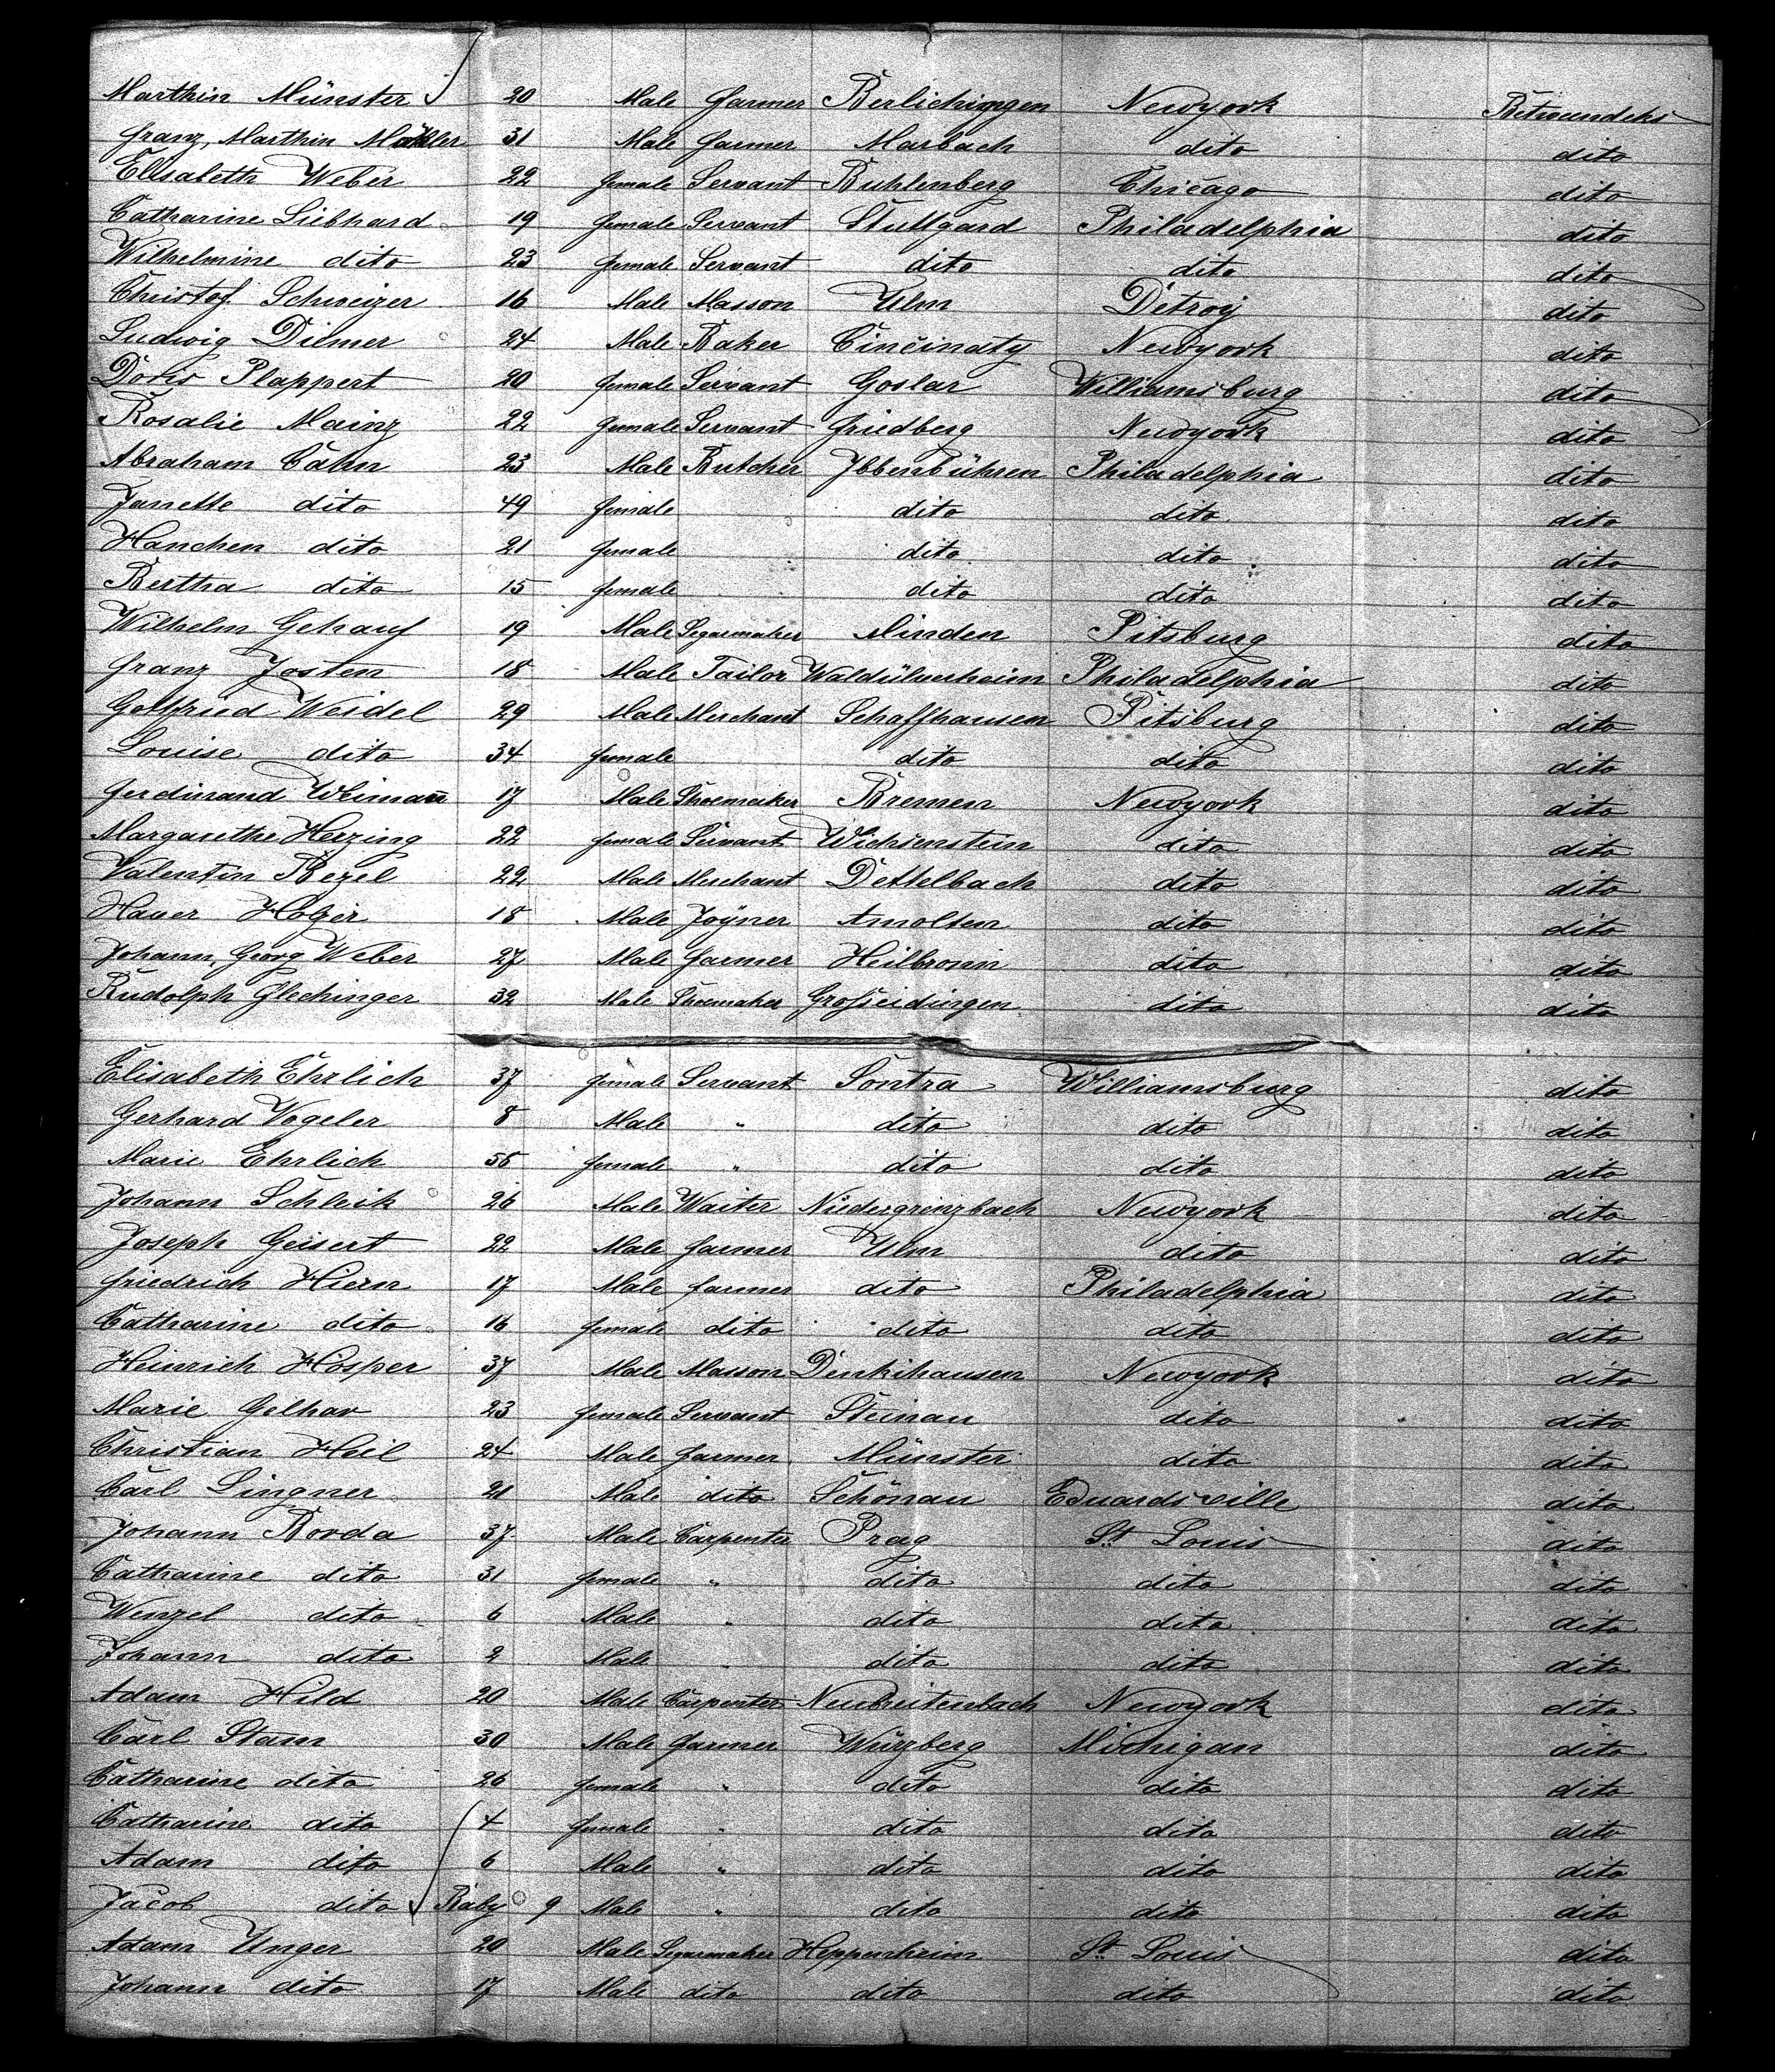 Marthin Münster 20 Male farmer Berlichingen Newyork Betweendeks
franz, Marthin 31 Male farmer Marbach dito dito
Elisabeth Weber 22 female Servant Buhlenberg Chicago dito
Catharine Liebhard 19 female Servant Stuttgard Philadelphia dito
Wilhelmine dito 23 female Servant dito dito dito
Christof Schweizer 16 Male Masson Ulm Detroy dito
Ludwig Dilmer 24 Male Baker Cincinaty Newyork dito
Doris Plappert 20 female Servant Goslar Williamsburg dito
Rosalie Mainz 22 female Servant friedberg Newyork dito
Abraham Cahn 23 Male Butcher Ibbenbühren Philadelphia dito
Janette dito 49 female dito dito dito
Hanchen dito 21 female dito dito dito
Bertha dito 15 female dito dito dito
Wilhelm Gehauf 19 Male Segarmaker Minden Pitsburg dito
franz Josten 18 Male Tailor Waldülversheim Philadelphia dito
Gottfried Weidel 29 Male Merchant Schaffhausen Pitsburg dito
Louise dito 34 female dito dito dito
ferdinand Weimann 17 Male Shoemaker Bremen Newyork dito
Margarethe Herzing 22 female Servant Wichsenstein dito dito
Valentin Bezel 22 Male Merchant Dettelbach dito dito
Haver Holzer 18 Male Joÿner Amolten dito dito
Johann, Georg Weber 27 Male farmer Heilbronn dito dito
Rudolph flechinger 32 Male Shoemaker dito dito
Elisabeth Ehrlich 37 female Servant Sontra Williamsburg dito
Gerhard Vogeler 8 Male " dito dito dito
Marie Ehrlich 58 female " dito dito dito
Johann Schleik 26 Male Waiter Niedergrenzbach Newyork dito
Joseph Geisert 22 Male farmer Ulm dito dito
friedrich Hiern 17 Male farmer dito Philadelphia dito
Catharine dito 16 female dito dito dito dito
Heinrich Hösper 37 Male Masson Denkihausen Newyork dito
Marie Gelhar 23 female Servant Steinau dito dito
Christian Heil 24 Male farmer Münster dito dito
Carl Lingner 21 Male dito Schönau Eduardsville dito
Johann Borda 37 Male Carpenter Prag St. Louis dito
Catharine dito 31 female " dito dito dito
Wenzel dito 6 Male " dito dito dito
Johann dito 2 Male " dito dito dito
Adam Hild 20 Male Carpenter Neubreitenbach Newyork dito
Carl Stam 30 Male farmer Würzberg Michigan dito
Catharine dito 26 female " dito dito dito
Catharine dito 4 female " dito dito dito
Adam dito 6 Male " dito dito dito
Jacob dito Baby 9 Male " dito dito dito
Adam Unger 20 Male Segarmaker Heppenheim St. Louis dito
Johann dito 17 Male dito dito dito dito